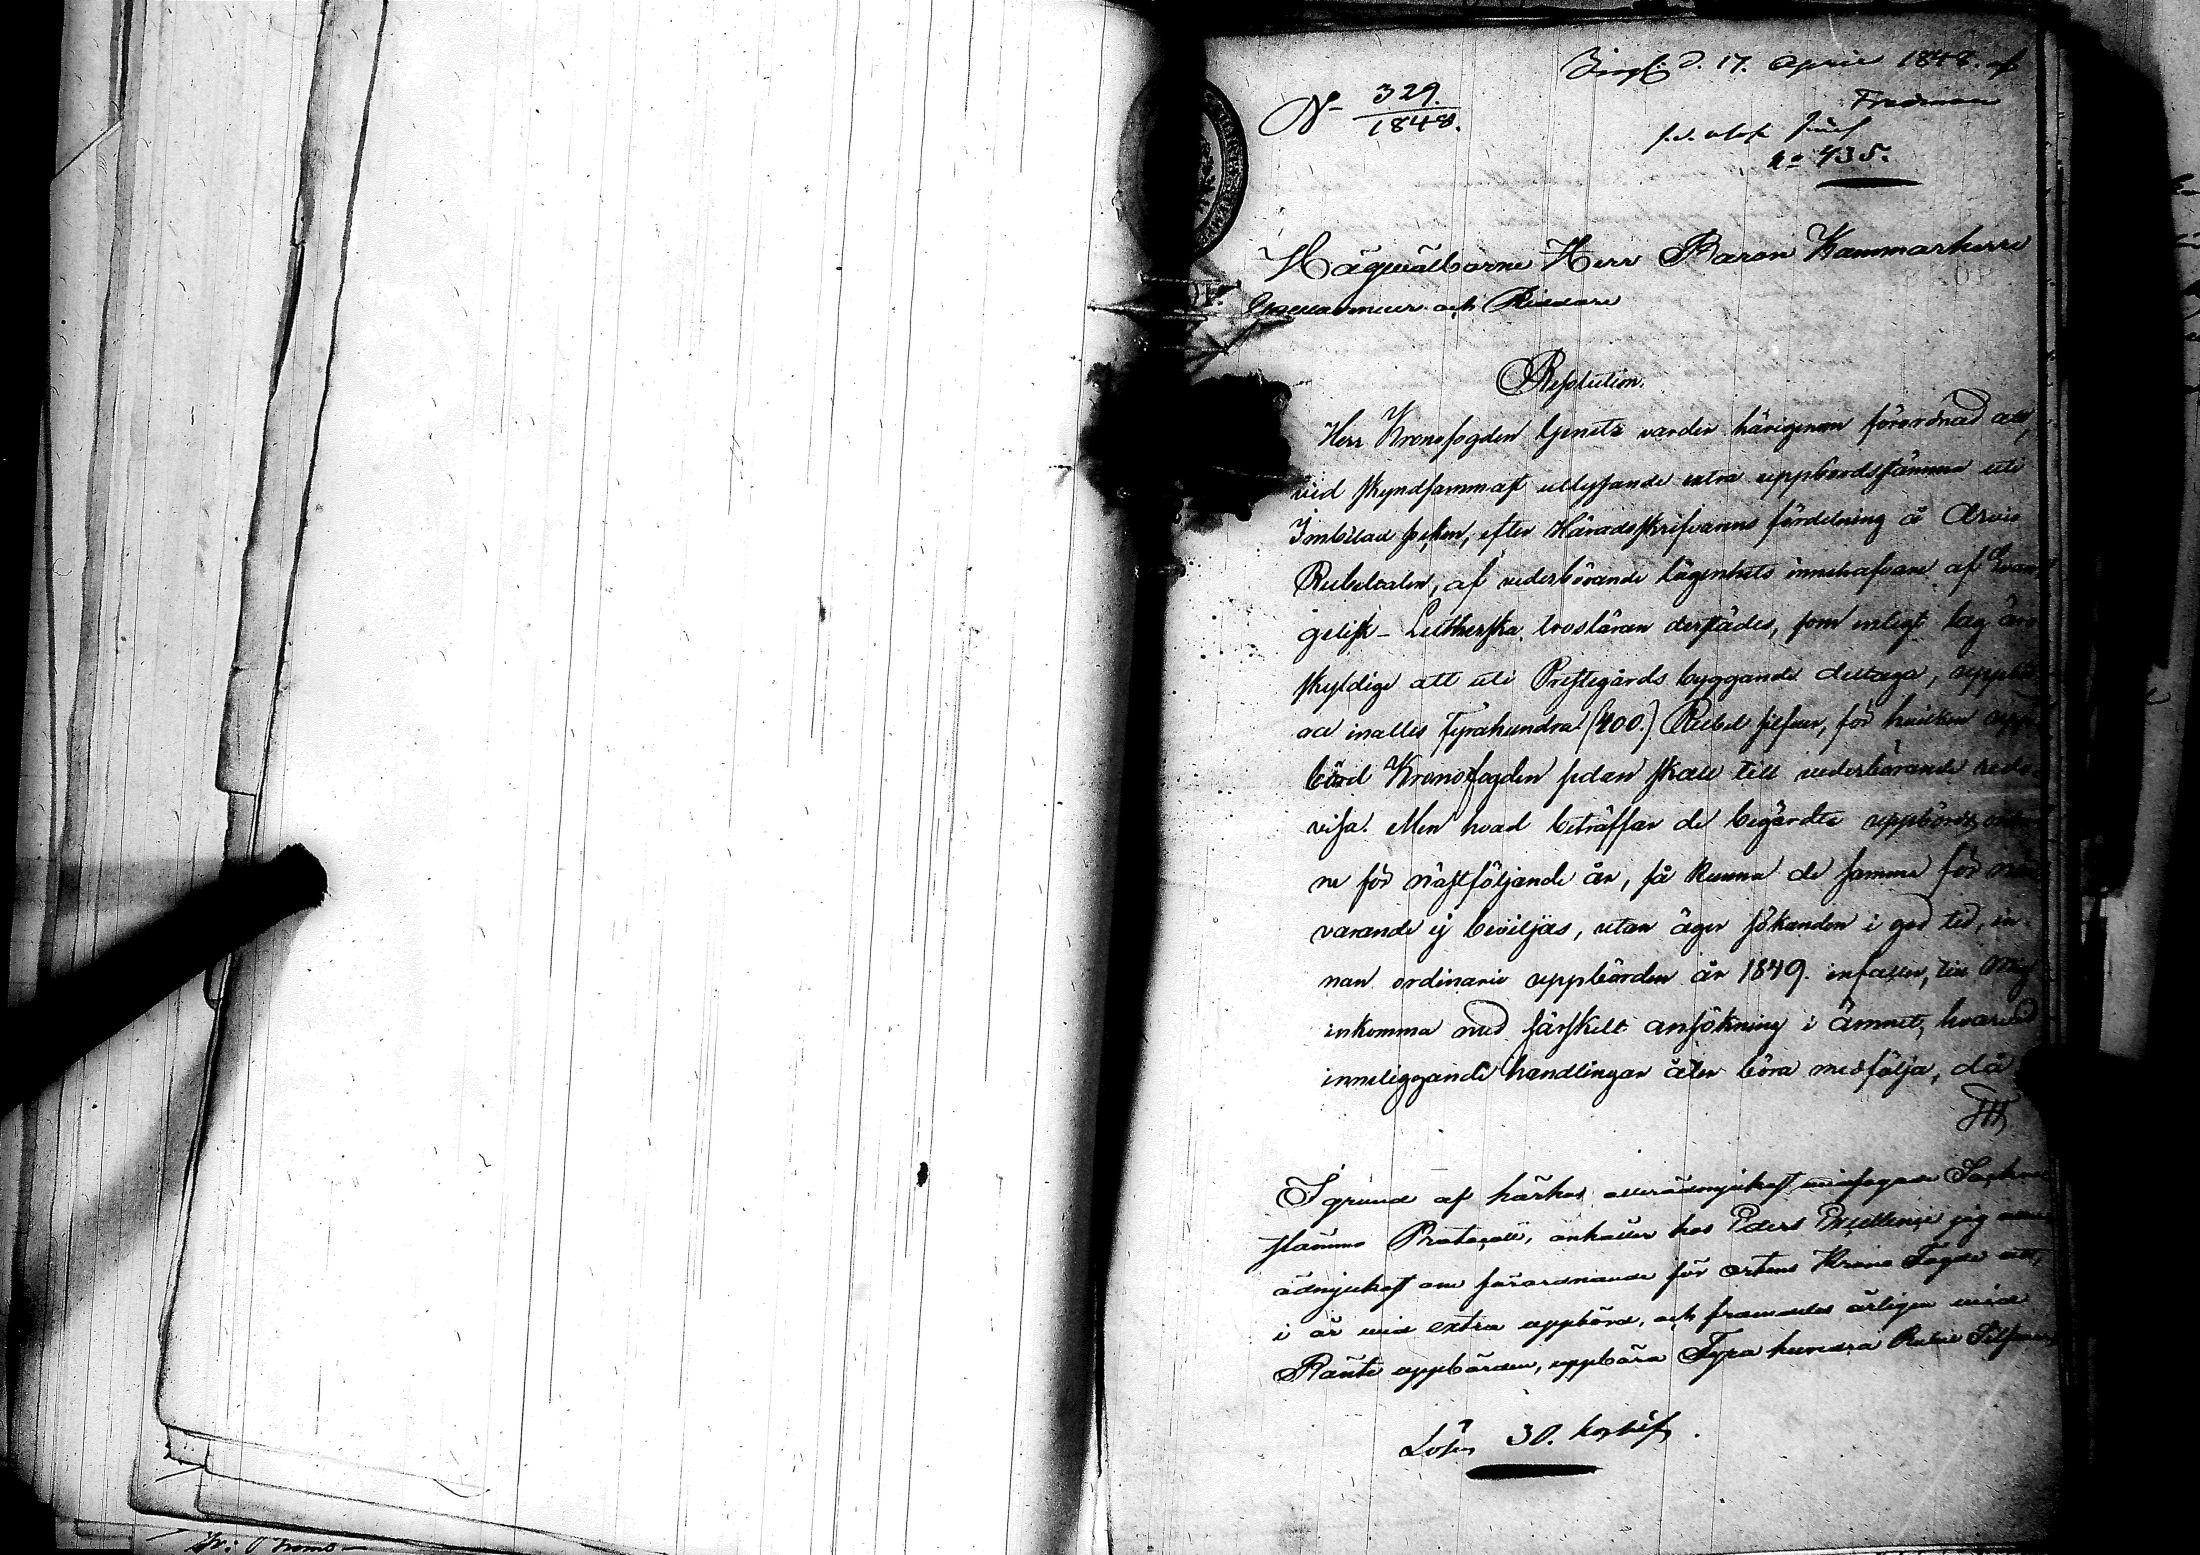 Ingf: d. 17. April 1848. af
N 329.
1848.
Fredman
No 435.
Högvälborne Herr Baron Kammarherre
Gouverneur och Riddare
Resolution.
Herr Kronofogden Genetz varder härigenom förordnad att,
vid skyndsammast utlysande extra uppbördsstämma uti
Imbilax socken, efter Häradsskrifvarens fördelning å Arvio
Rubeltalen, af vederbörande lägenhets innehafvare af Evan-
gelisk-Lutherska trosläran derstädes, som enligt lag äro
skyldige att uti Prestegårds byggande deltaga, uppbä-
ra inalles Fyrahundra (400.) Rubel silfver, för hvilken upp-
börd Kronofogden sedan skall till vederbörande redo-
visa. Men hvad beträffar de begärdta uppbörds
ne för nästföljande år, så kunna de samma för när-
varande ej beviljas, utan äger sökanden i god tid, in-
nan ordinarie uppbörden år 1849. infaller, till Mig
inkomma med särskilt ansökning i ämnet, hvarvid
inneliggande handlingar åter böra medfölja, då
I grund af härhos allerödmjukast Sockne
stämmo Protocoll, anhåller hos Eders Excellence jag aller
ödmjukast om förordnande för ortens Krono Fogde att,
i år vid extra uppbörd, och framdeles årligen vid
Ränte uppbörden, uppbära Fyra hundra Rubel Silfver
Lösen 30. kop silf.